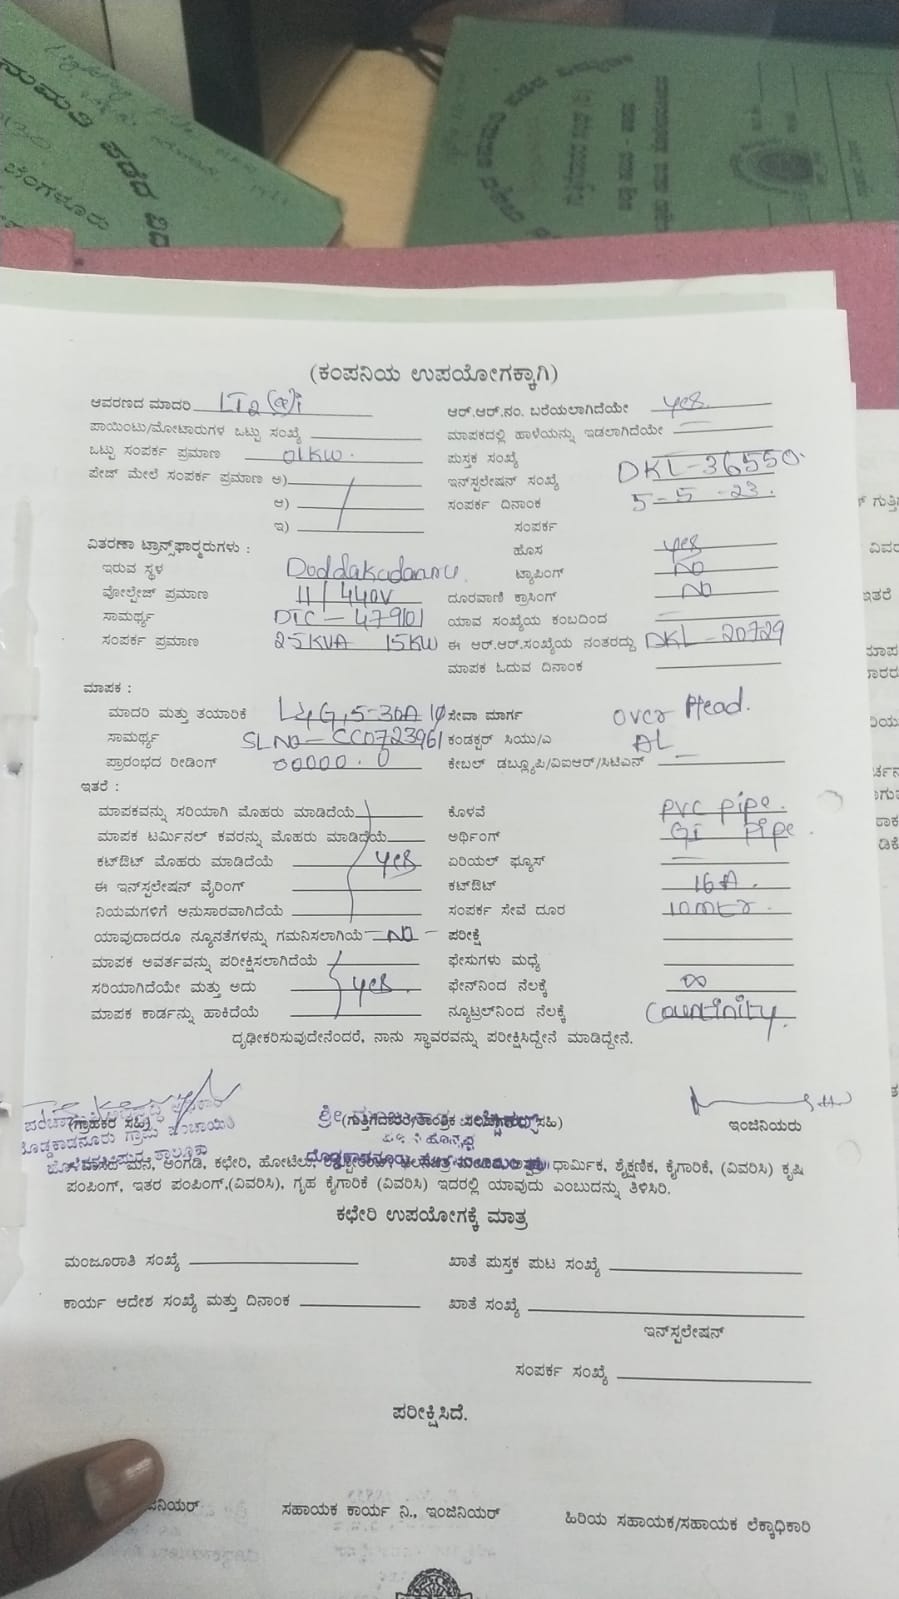 ನುಮತಿ ಪಡೆದ
ಬೆಂಗಳೂರು
(ಕಂಪನಿಯ ಉಪಯೋಗಕ್ಕಾಗಿ)
ಆವರಣದ ಮಾದರಿ LT2(a)i ಆರ್.ಆರ್.ನಂ. ಬರೆಯಲಾಗಿದೆಯೇ yes
ಪಾಯಿಂಟು/ಮೋಟಾರುಗಳ ಒಟ್ಟು ಸಂಖ್ಯೆ ಮಾಪಕದಲ್ಲಿ ಹಾಳೆಯನ್ನು ಇಡಲಾಗಿದೆಯೇ
ಒಟ್ಟು ಸಂಪರ್ಕ ಪ್ರಮಾಣ 01KW. ಪುಸ್ತಕ ಸಂಖ್ಯೆ
ಪೇಜ್ ಮೇಲೆ ಸಂಪರ್ಕ ಪ್ರಮಾಣ ಅ) ಇನ್‌ಸ್ಟಲೇಷನ್ ಸಂಖ್ಯೆ DKL-36550.
ಆ) ಸಂಪರ್ಕ ದಿನಾಂಕ 5-5-23.
ಇ) ಸಂಪರ್ಕ
ವಿತರಣಾ ಟ್ರಾನ್ಸ್‌ಫಾರ್ಮರುಗಳು : ಹೊಸ yes
ಇರುವ ಸ್ಥಳ ಟ್ಯಾಪಿಂಗ್ NO
ವೋಲ್ಟೇಜ್ ಪ್ರಮಾಣ 11/440V ದೂರವಾಣಿ ಕ್ರಾಸಿಂಗ್ NO
ಸಾಮರ್ಥ್ಯ DTC-479101 ಯಾವ ಸಂಖ್ಯೆಯ ಕಂಬದಿಂದ
ಸಂಪರ್ಕ ಪ್ರಮಾಣ 25KVA 15KW ಈ ಆರ್.ಆರ್.ಸಂಖ್ಯೆಯ ನಂತರದ್ದು DKL-20729
ಮಾಪಕ ಓದುವ ದಿನಾಂಕ
ಮಾಪಕ :
ಮಾದರಿ ಮತ್ತು ತಯಾರಿಕೆ L&G,5-30A 1φ ಸೇವಾ ಮಾರ್ಗ over Head.
ಸಾಮರ್ಥ್ಯ SLNO-CC0723961 ಕಂಡಕ್ಟರ್ ಸಿಯು/ಎ AL
ಪ್ರಾರಂಭದ ರೀಡಿಂಗ್ 00000.0 ಕೇಬಲ್ ಡಬ್ಲ್ಯೂಪಿ/ವಿಐಆರ್/ಸಿಟಿಎನ್
ಇತರೆ :
ಮಾಪಕವನ್ನು ಸರಿಯಾಗಿ ಮೊಹರು ಮಾಡಿದೆಯೆ ಕೊಳವೆ PVC pipe.
ಮಾಪಕ ಟರ್ಮಿನಲ್ ಕವರನ್ನು ಮೊಹರು ಮಾಡಿದೆಯೆ ಅರ್ಥಿಂಗ್ GI pipe.
ಕಟ್‌ಔಟ್ ಮೊಹರು ಮಾಡಿದೆಯೆ yes ಏರಿಯಲ್ ಫ್ಯೂಸ್
ಈ ಇನ್‌ಸ್ಟಲೇಷನ್ ವೈರಿಂಗ್ ಕಟ್‌ಔಟ್ 16A.
ನಿಯಮಗಳಿಗೆ ಅನುಸಾರವಾಗಿದೆಯೆ ಸಂಪರ್ಕ ಸೇವೆ ದೂರ 10mtr.
ಯಾವುದಾದರೂ ನ್ಯೂನತೆಗಳನ್ನು ಗಮನಿಸಲಾಗಿಯೆ NO ಪರೀಕ್ಷೆ
ಮಾಪಕ ಅವರ್ತವನ್ನು ಪರೀಕ್ಷಿಸಲಾಗಿದೆಯೆ ಫೇಸುಗಳು ಮಧ್ಯೆ
ಸರಿಯಾಗಿದೆಯೇ ಮತ್ತು ಅದು yes. ಫೇನ್‌ನಿಂದ ನೆಲಕ್ಕೆ ∞
ಮಾಪಕ ಕಾರ್ಡನ್ನು ಹಾಕಿದೆಯೆ ನ್ಯೂಟ್ರಲ್‌ನಿಂದ ನೆಲಕ್ಕೆ Countinity.
ದೃಢೀಕರಿಸುವುದೇನೆಂದರೆ, ನಾನು ಸ್ಥಾವರವನ್ನು ಪರೀಕ್ಷಿಸಿದ್ದೇನೆ ಮಾಡಿದ್ದೇನೆ.
(ಗ್ರಾಹಕರ ಸಹಿ) ಇಂಜಿನಿಯರು
ಧಾರ್ಮಿಕ, ಶೈಕ್ಷಣಿಕ, ಕೈಗಾರಿಕೆ, (ವಿವರಿಸಿ) ಕೃಷಿ
ಪಂಪಿಂಗ್, ಇತರ ಪಂಪಿಂಗ್,(ವಿವರಿಸಿ), ಗೃಹ ಕೈಗಾರಿಕೆ (ವಿವರಿಸಿ) ಇದರಲ್ಲಿ ಯಾವುದು ಎಂಬುದನ್ನು ತಿಳಿಸಿರಿ.
ಕಛೇರಿ ಉಪಯೋಗಕ್ಕೆ ಮಾತ್ರ
ಮಂಜೂರಾತಿ ಸಂಖ್ಯೆ ಖಾತೆ ಪುಸ್ತಕ ಪುಟ ಸಂಖ್ಯೆ
ಕಾರ್ಯ ಆದೇಶ ಸಂಖ್ಯೆ ಮತ್ತು ದಿನಾಂಕ ಖಾತೆ ಸಂಖ್ಯೆ
ಇನ್‌ಸ್ಟಲೇಷನ್
ಸಂಪರ್ಕ ಸಂಖ್ಯೆ
ಪರೀಕ್ಷಿಸಿದೆ.
ಸಹಾಯಕ ಕಾರ್ಯ ನಿ., ಇಂಜಿನಿಯರ್ ಹಿರಿಯ ಸಹಾಯಕ/ಸಹಾಯಕ ಲೆಕ್ಕಾಧಿಕಾರಿ